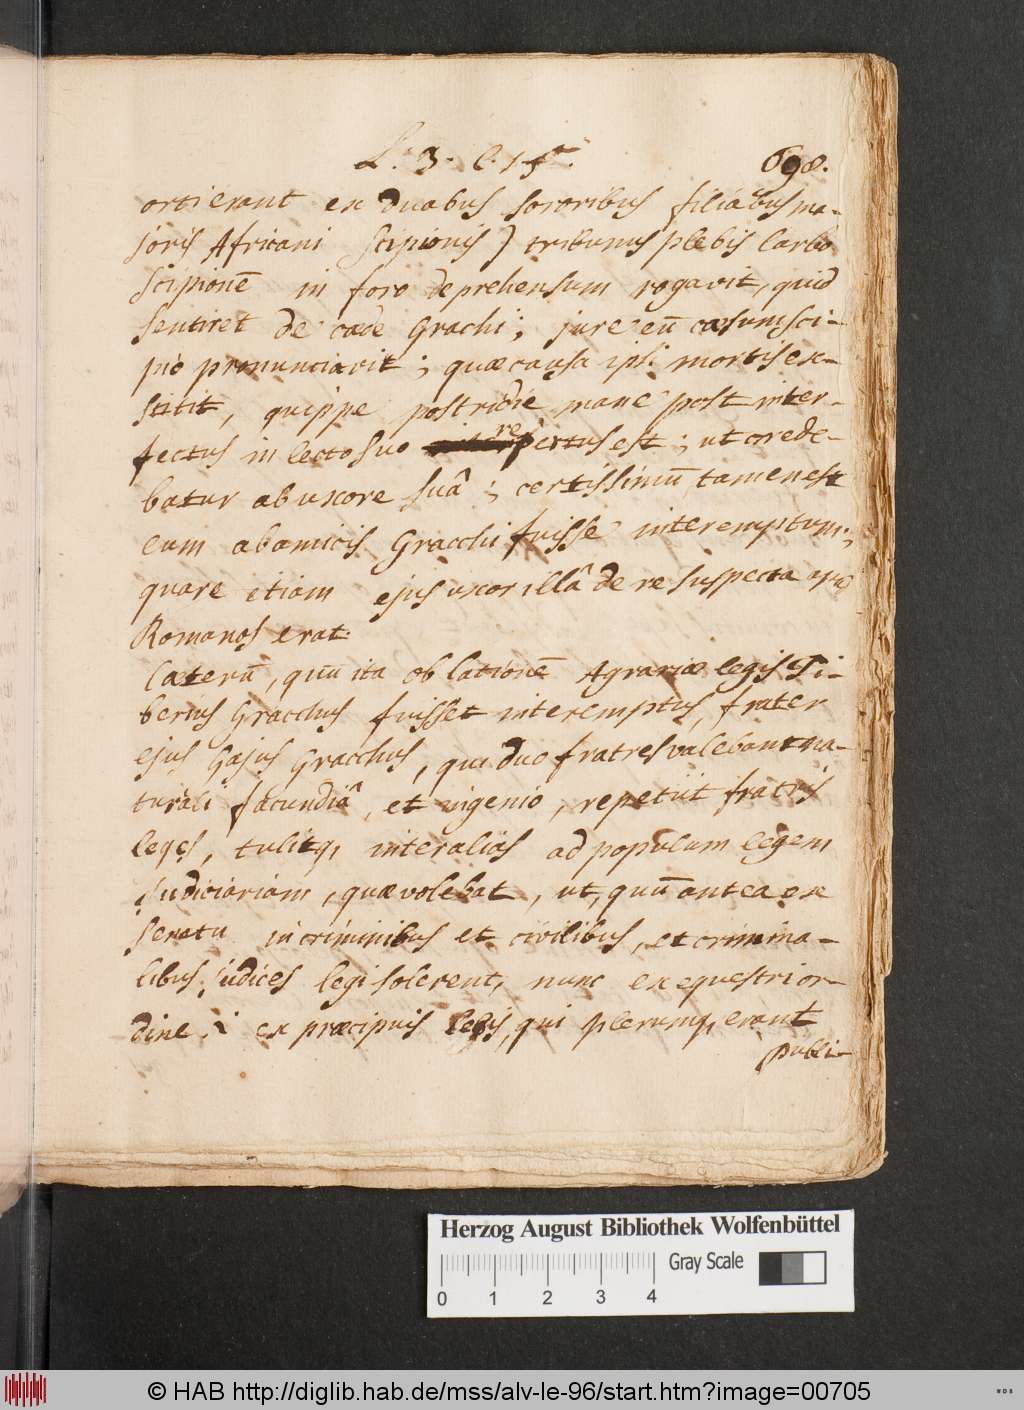 L. 3. C. 15. 698.
orti erant ex duabus sororibus filiabus ma-
joris Africani Scipionis) tribunus plebis Carbo
Scipionē in foro deprehensum rogavit, quid
sentiret de cæde Grachi; jure eū cæsum sci-
pio pronunciavit; quæ causa ipsi mortis ex-
stitit, quippe postridie mane post inter-
fectus in lecto suo repertus est; ut crede-
batur ab uxore suâ; certissimū tamen est
eum ab amicis Gracchi fuisse interemptum;
quare etiam ejus uxor illâ de re suspecta apud
Romanos erat.
Cæterū, quū ita ob lationē Agrariæ legis Ti-
berius Gracchus fuisset interemptus, frater
ejus Gajus Gracchus, qui duo fratres valebant na-
turali facundiâ, et ingenio, repetiit fratris
leges, tulitq, inter aliâs ad populum legem
Judiciariam, quæ volebat, ut, quū antea ex
senatu in criminibus et civilibus, et crimina-
libus judices legi solerent, nunc ex equestri or-
dine i ex præcipuis legis, qui plerumq, erant
publi-
Herzog August Bibliothek Wolfenbüttel
Gray Scale
0 1 2 3 4
© HAB http://diglib.hab.de/mss/alv-le-96/start.htm?image=00705